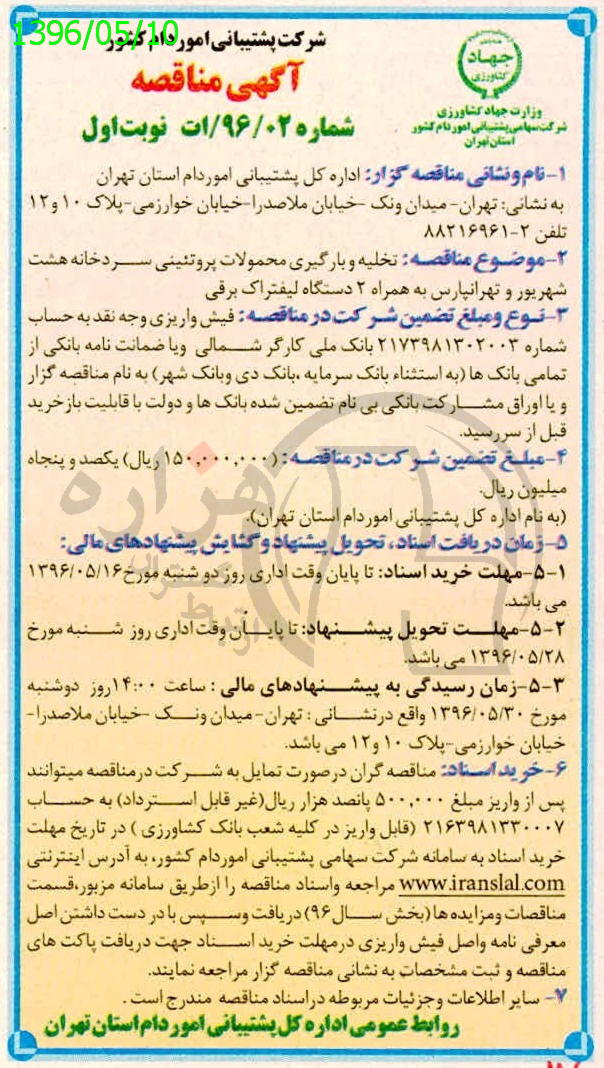 1396/05/10
شرکت پشتیبانی امور دام کشور
آگهی مناقصه
شماره ۹۶/۰۲/ات نوبت اول
جهاد
کشاورزی
وزارت جهاد کشاورزی
شرکت سهامی پشتیبانی امور دام کشور
استان تهران
۱-نام و نشانی مناقصه گزار: اداره کل پشتیبانی اموردام استان تهران
به نشانی: تهران- میدان ونک -خیابان ملاصدرا-خیابان خوارزمی-پلاک ۱۰ و۱۲
تلفن ۲-۸۸۲۱۶۹۶۱
۲-موضوع مناقصه: تخلیه و بارگیری محمولات پروتئینی سردخانه هشت
شهریور و تهرانپارس به همراه ۲ دستگاه لیفتراک برقی
۳-نوع ومبلغ تضمین شرکت در مناقصه: فیش واریزی وجه نقد به حساب
شماره ۲۱۷۳۹۸۱۳۰۲۰۰۳ بانک ملی کارگر شمالی ویا ضمانت نامه بانکی از
تمامی بانک ها (به استثناء بانک سرمایه ،بانک دی وبانک شهر) به نام مناقصه گزار
و یا اوراق مشارکت بانکی بی نام تضمین شده بانک ها و دولت با قابلیت بازخرید
قبل از سررسید.
۴-مبلغ تضمین شرکت در مناقصه: (۱۵۰,۰۰۰,۰۰۰ ریال) یکصد و پنجاه
میلیون ریال.
(به نام اداره کل پشتیبانی اموردام استان تهران).
۵-زمان دریافت اسناد، تحویل پیشنهاد و گشایش پیشنهادهای مالی:
۵-۱-مهلت خرید اسناد: تا پایان وقت اداری روز دو شنبه مورخ ۱۳۹۶/۰۵/۱۶
می باشد.
۵-۲-مهلت تحویل پیشنهاد: تا پایان وقت اداری روز شنبه مورخ
۱۳۹۶/۰۵/۲۸ می باشد.
۵-۳-زمان رسیدگی به پیشنهادهای مالی : ساعت ۱۴:۰۰روز دوشنبه
مورخ ۱۳۹۶/۰۵/۳۰ واقع درنشانی : تهران- میدان ونک -خیابان ملاصدرا-
خیابان خوارزمی-پلاک ۱۰ و۱۲ می باشد.
۶-خرید اسناد: مناقصه گران درصورت تمایل به شرکت درمناقصه میتوانند
پس از واریز مبلغ ۵۰۰,۰۰۰ پانصد هزار ریال(غیر قابل استرداد) به حساب
۲۱۶۳۹۸۱۳۳۰۰۰۷ (قابل واریز در کلیه شعب بانک کشاورزی ) در تاریخ مهلت
خرید اسناد به سامانه شرکت سهامی پشتیبانی اموردام کشور، به آدرس اینترنتی
www.iranslal.com مراجعه واسناد مناقصه را ازطریق سامانه مزبور،قسمت
مناقصات ومزایده ها (بخش سال ۹۶) دریافت وسپس با در دست داشتن اصل
معرفی نامه واصل فیش واریزی درمهلت خرید اسناد جهت دریافت پاکت های
مناقصه و ثبت مشخصات به نشانی مناقصه گزار مراجعه نمایند.
۷- سایر اطلاعات وجزئیات مربوطه دراسناد مناقصه مندرج است .
روابط عمومی اداره کل پشتیبانی امور دام استان تهران
هزاره